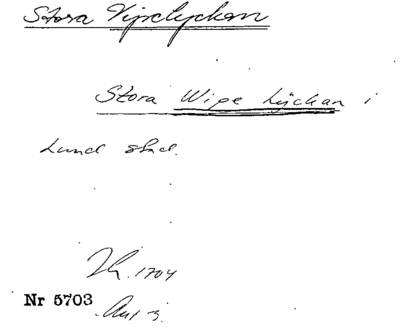 Stora Vipelyckan
Stora Wipe Lyckan i
Lund stad.
1704
Nr 5703